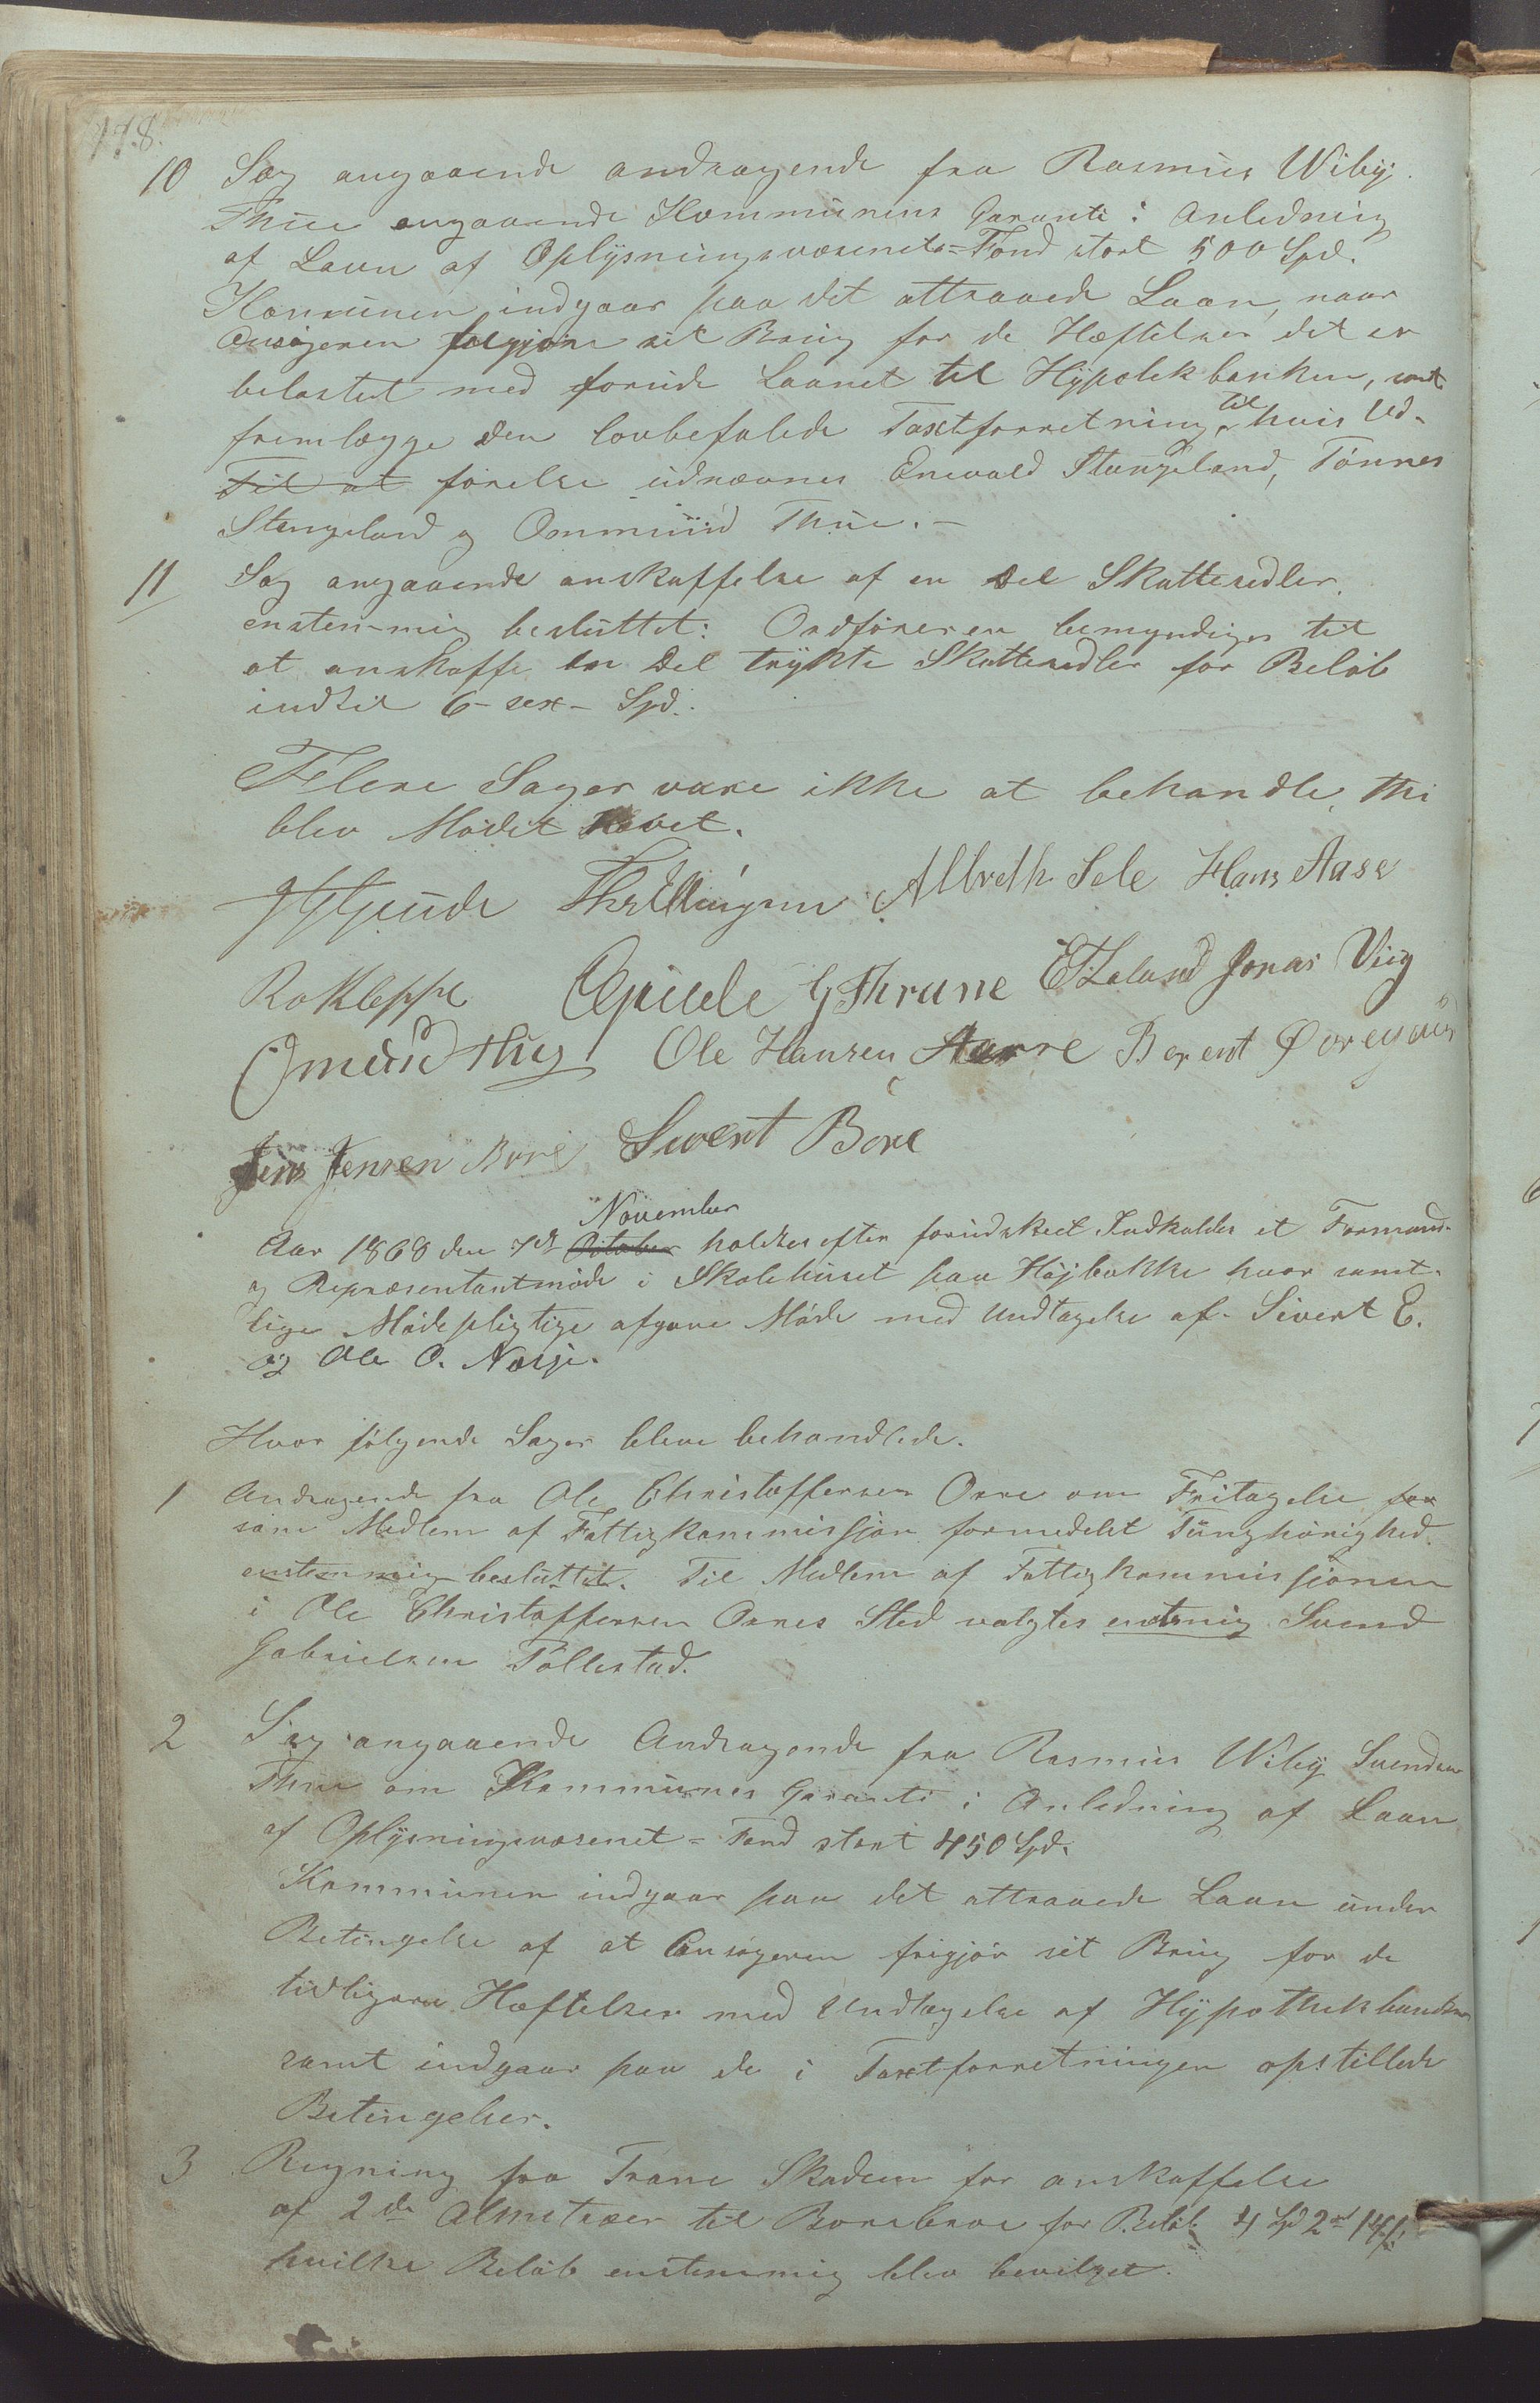 178.
10 Sag angaaende andragende fra Rasmus Wiby
Thue angaaende Kommunens Garanti i Anledning
af Laan af Oplysningsvæsenets-Fond stort 500 Spd.
Kommunen indgaar paa det attraaede Laan, naar
Ansøgeren frigjøre sit Brug for de Hæftelser det er
belastet med foruden Laanet til Hypotekbanken, samt
fremlægge den lovbefalede Taxtforretning, til hvis Ud-
Til at førelse udnævnes Enevald Stangeland, Tønnes
Stangeland og Ommund Thue.-
11 Sag angaaende anskaffelse af en Del Skattesedler.
enstemmig besluttet: Ordføreren bemyndiges til
at anskaffe en Del trykte Skattesedler for Beløb
indtil 6 - sex - Spd.
Flere Sager vare ikke at behandle, thi
blev Mødet hævet.
Albreth Sele Hans Aase
G Thrane E T Laland Jonas Viig
RoKleppe
Omund Thu Ole Hansen Aarre Berent Øveregaus
Jens Jensen Bore Sivert Bore
November
Aar 1868 den 7de October holdtes efter forudskeet Indkaldes et Formands-
og Repræsentantmøde i Skolehuset paa Højbakke hvor samt-
lige Mødepligtige afgave Møde med Undtagelse af Sivert E.
og Ole O. Næsje.
Hvor følgende Sager bleve behandlede.
1 Andragende fra Ole Christoffersen Orre om Fritagelse for
som Medlem af Fattigkommissjon formedelst Tunghørighed.
enstemmig besluttet. Til Medlem af Fattigkommissjonen
i Ole Christoffersen Orres Sted valgtes enstemig Svend
Gabrielsen Tøllestad.
2 Sag angaaende Andragende fra Rasmus Wiby Svendsen
Thue om Kommunes Garanti i Anledning af Laan
af Oplysningsvæsenet-Fond stort 450 Spd.
Kommunen indgaar paa det attraaede Laan under
Betingelse af at Ansøgeren frigjør sit Brug for de
tidligere Hæftelser med Undtagelse af Hypothekbanken
samt indgaar paa de i Taxtforretningen opstillede
Betingelser.
3 Regning fra Trane Skadem for anskaffelse
af 2de Almetræer til Borebroe for Beløb 4 Spd 2 ort 14 s.
hvilke Beløb enstemmig blev bevilget.